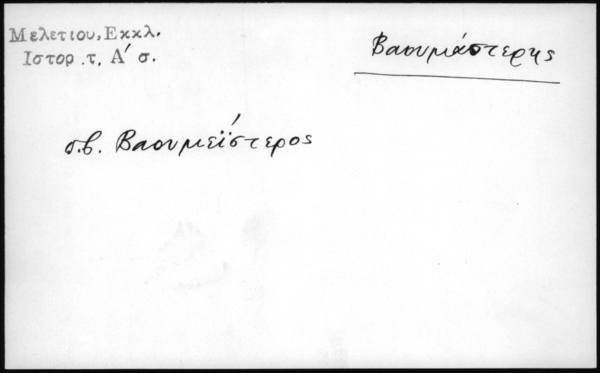 Μελετιου, Εκκλ.
Ιστορ .τ, Α΄ σ.
Βαουμιάστερης
σ.β. Βαουμεΐστερος